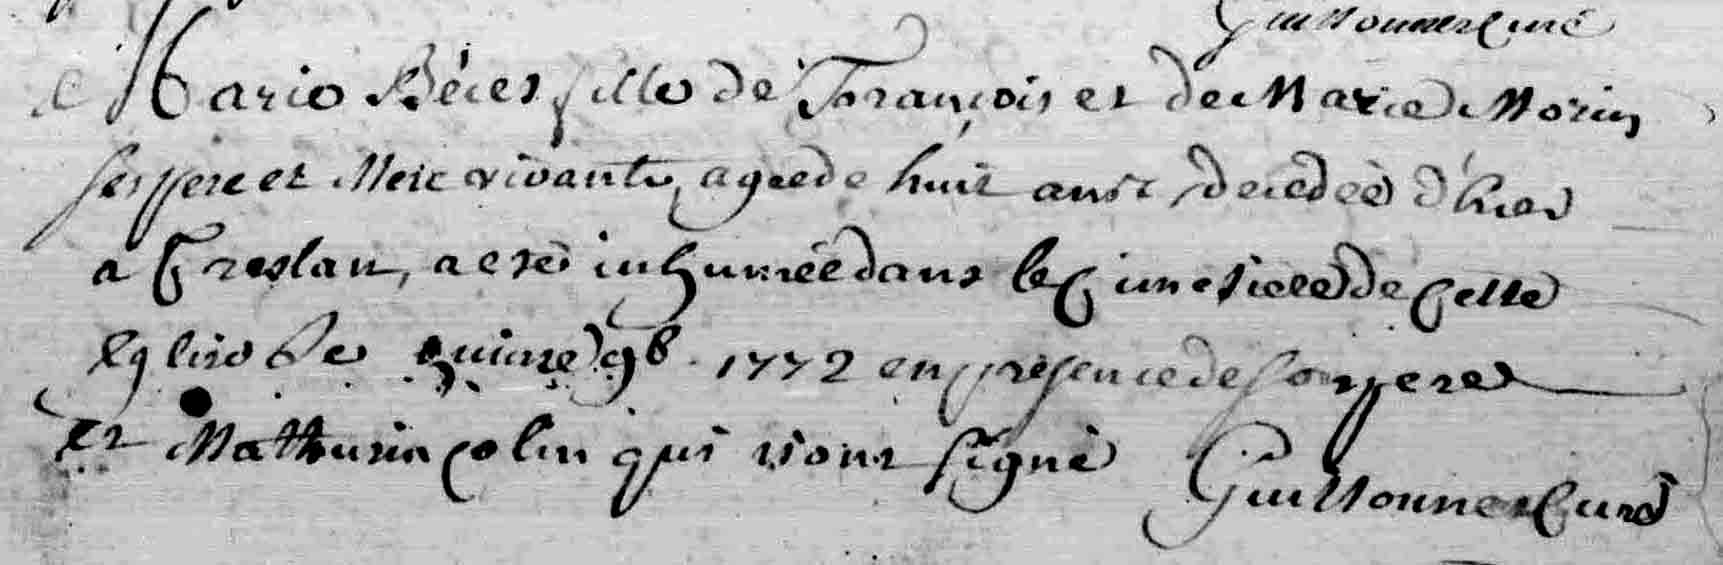 Guillonnet Curé
Marie Bécel fille de François et de Marie Morin
ses pere et Mere vivants, agee de huit ans decedeé d'hier
a Treslan, a eté inhumée dans le Cimetiere de Cette
Eglise Le quinze 9b. 1772 en presence de son pere
Et Mathurin Colin qui n'ont signé Guillonnet Curé